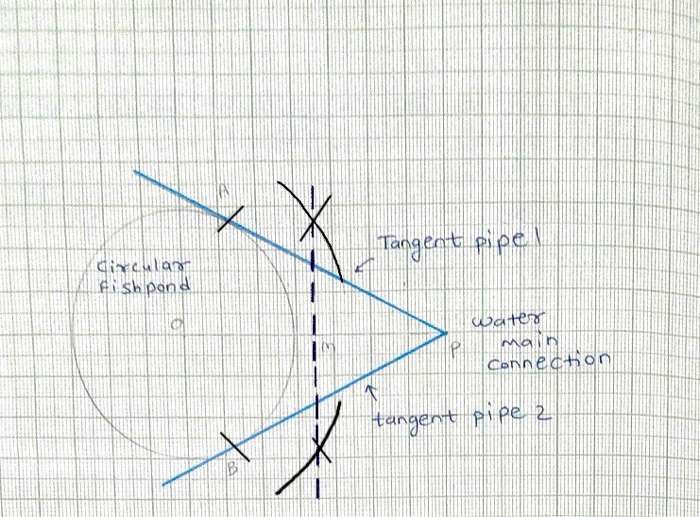 A
Tangent pipe 1
Circular
Fishpond
O
water
main
connection
m
P
tangent pipe 2
B